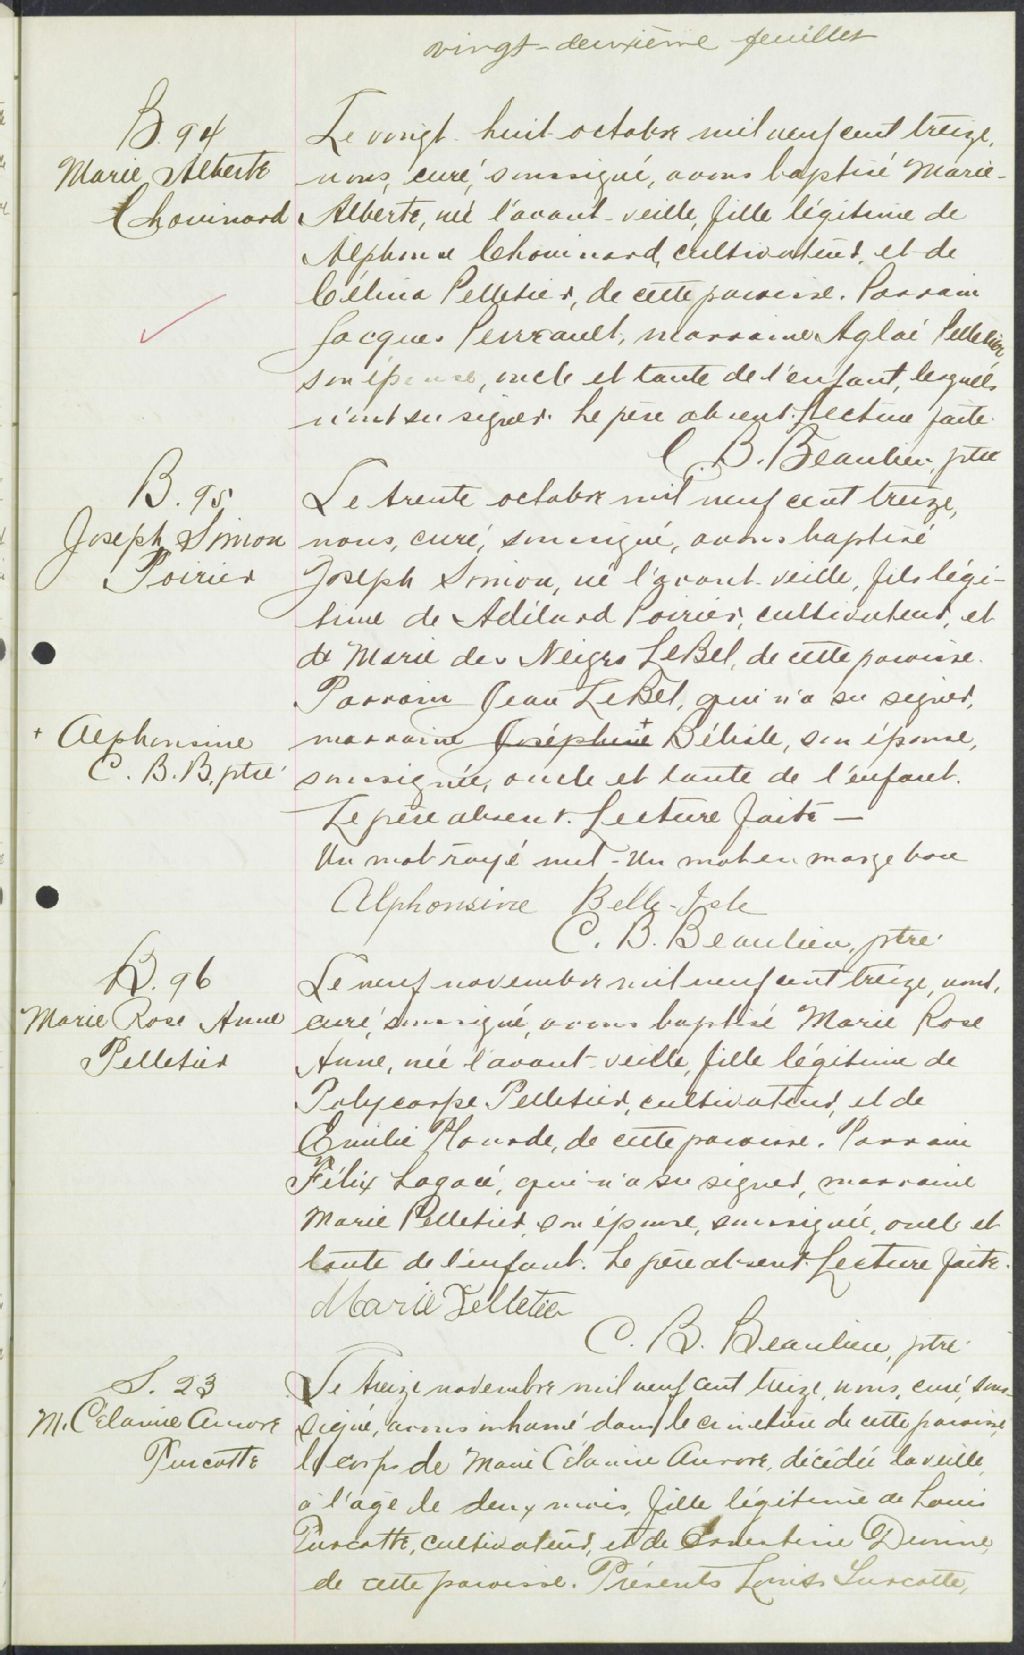 vingt-deuxième feuillet
B. 94
Marie Alberte
Chouinard
Le vingt-huit octobre mil neuf cent treize,
nous, curé, soussigné, avons baptisé Marie-
Alberte, née l'avant-veille, fille légitime de
Alphonse Chouinard, cultivateur, et de
Célina Pelletier, de cette paroisse. Parrain
Jacques Perreault, marraine Aglaé Pelletier,
son épouse, oncle et tante de l'enfant, lesquels
n'ont su signer. Le père absent. Lecture faite.
C. B. Beaulieu, ptre
B. 95
Joseph Simon
Poirier
Le trente octobre mil neuf cent treize,
nous, curé, soussigné, avons baptisé
Joseph Simon, né l'avant-veille, fils légi-
time de Adélard Poirier, cultivateur, et
de Marie des Neiges LeBel, de cette paroisse.
Parrain Jean LeBel, qui n'a su signer,
marraine Joséphine + Bélisle, son épouse,
+ Alphonsine
C. B. B. ptre
soussignée, oncle et tante de l'enfant.
Le père absent. Lecture faite —
Un mot rayé nul - Un mot en marge bon
Alphonsine Belle-Isle
C. B. Beaulieu, ptre.
B. 96
Marie Rose Anne
Pelletier
Le neuf novembre mil neuf cent treize, nous,
curé, soussigné, avons baptisé Marie Rose
Anne, née l'avant-veille, fille légitime de
Polycarpe Pelletier, cultivateur, et de
Emilie Plourde, de cette paroisse. Parrain
Félix Lagacé, qui n'a su signer, marraine
Marie Pelletier, son épouse, soussignée, oncle et
tante de l'enfant. Le père absent. Lecture faite.
Marie Pelletier
C. B. Beaulieu, ptre.
S. 23
M. Célanire Aurore
Turcotte
Le treize novembre mil neuf cent treize, nous, curé, sous-
signé, avons inhumé dans le cimetière de cette paroisse,
le corps de Marie Célanire Aurore, décédée la veille,
à l'age de deux mois, fille légitime de Louis
Turcotte, cultivateur, et de Ernestine Dionne,
de cette paroisse. Présents Louis Turcotte,